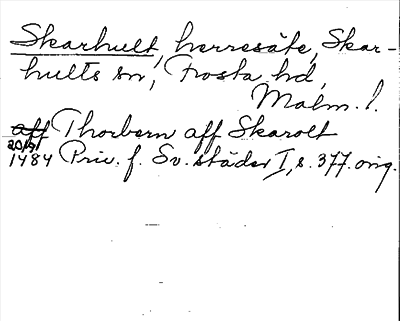 Skarhult, herresäte, Skar-
hults sn, Frosta hd,
Malm. l.
aff Thorbern aff Skarolt
20/9
1484 Priv. f. Sv. städer I, s. 377. orig.